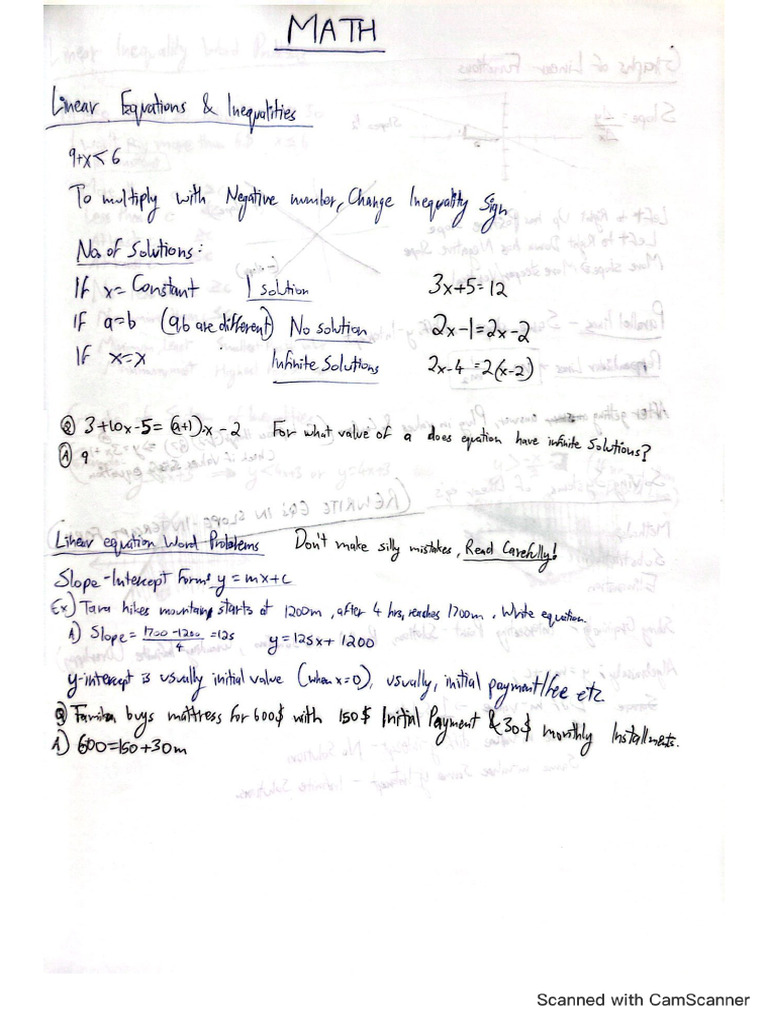 MATH
Linear Equations & Inequalities
9+x<6
To multiply with Negative number, Change Inequality Sign
No. of Solutions:
If x = Constant 1 solution 3x+5=12
If a=b (a,b are different) No solution 2x-1=2x-2
If x=x Infinite Solutions 2x-4=2(x-2)
Q 3+10x-5=(a+1)x-2 For what value of a does equation have infinite solutions?
A 9
Linear equation Word Problems Don't make silly mistakes, Read Carefully!
Slope-Intercept Form: y=mx+c
Ex) Tara hikes mountain, starts at 1200m, after 4 hrs, reaches 1700m, Write equation.
A) Slope = 1700-1200/4 = 125 y=125x+1200
y-intercept is usually initial value (when x=0), usually, initial payment/fee etc
Q buys mattress for 600$ with 150$ Initial Payment & 30$ monthly Installments.
A) 600=150+30m
Scanned with CamScanner